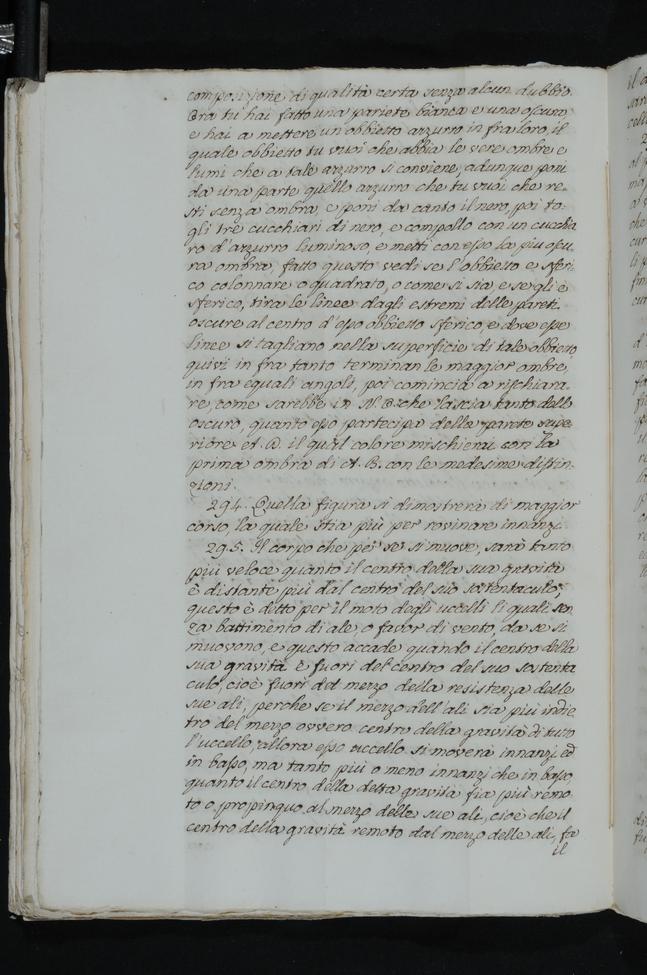 composizione di qualità certa senza alcun dubbio.
Ora tu hai fatto una pariete bianca e una oscura,
e hai a mettere un obbietto azzurro in fra loro, il
quale obbietto tu vuoi che abbia le vere ombre e
lumi che a tale azzurro si conviene, adunque poni
da una parte quello azzurro che tu vuoi che re-
sti senza ombra, e poni da canto il nero, poi to-
gli tre cucchiari di nero, e compollo con un cucchia
ro d'azzurro luminoso, e metti con esse la più oscu
ra ombra, fatto questo vedi se l'obbietto e sferi-
co colonnare o quadrato, o come si sia, e se gli è
sferico, tira le linee dagli estremi delle pareti
oscure al centro d'esso obbietto sferico, e dove esse
linee si tagliano nella superficie di tale obbietto
quivi in fra tanto terminan le maggior ombre,
in fra equali angoli, poi comincia a rischiara-
re, come sarebbe in N. O. che lascia tanto dello
oscuro, quanto esso partecipa della parete supe-
riore A. D. il qual colore mischierai con la
prima ombra di A. B. con le medesime distin-
zioni.
294. Quella figura si dimostrerà di maggior
corso, la quale stia più per rovinare innanzi.
295. Il corpo che per se si muove, sarà tanto
più veloce quanto il centro della sua gravità
è distante più dal centro del suo sostentaculo;
questo è ditto per il moto degli uccelli li quali sen
za battimento di ale, o favor di vento, da se si
muovono, e questo accade quando il centro della
sua gravità è fuori del centro del suo sostenta
culo, cioè fuori del mezzo della resistenza delle
sue ali, perche se il mezzo dell'ali sia più indie
tro del mezzo ovvero centro della gravità di tutto
l'uccello, allora esso uccello si moverà innanzi ed
in basso, ma tanto più o meno innanzi che in basso,
quanto il centro della detta gravità fia più remo
to o propinquo al mezzo delle sue ali, cioè che il
centro della gravità remoto dal mezzo delle ali, fa
il